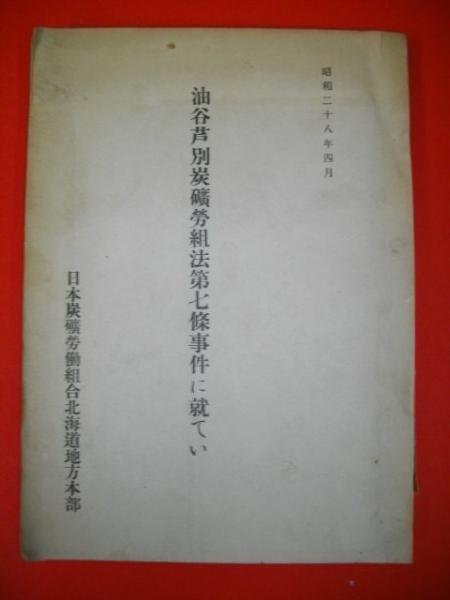 昭和二十八年四月
油谷芦別炭礦労組法第七條事件に就てい
日本炭礦労働組合北海道地方本部